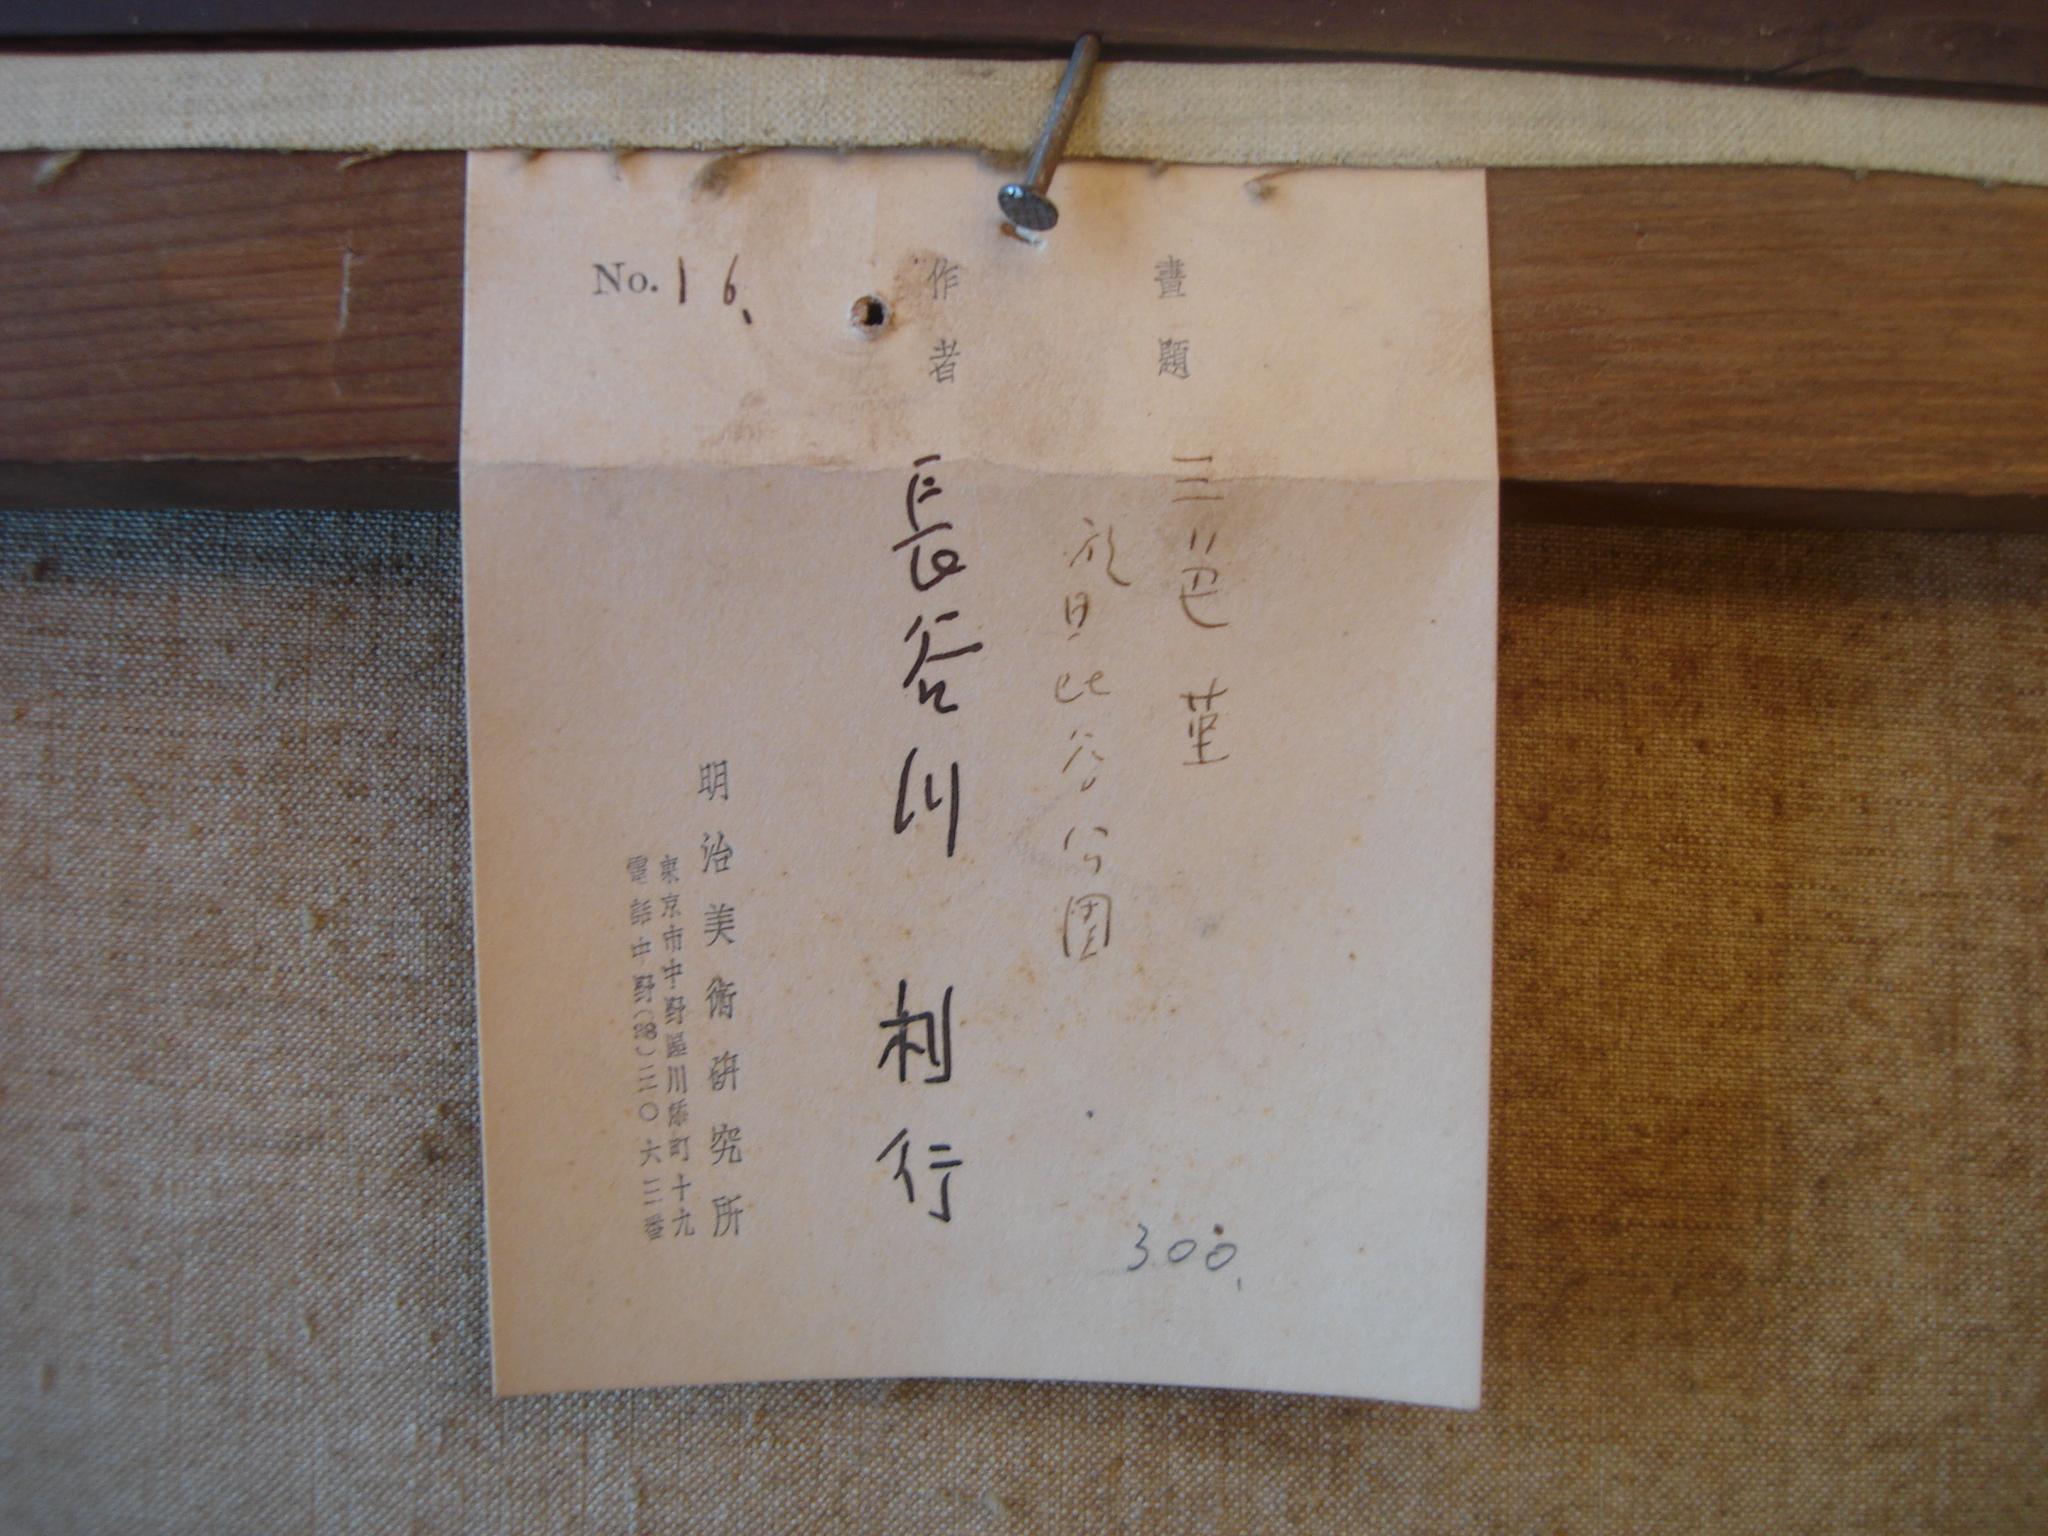 畫題 三色菫
於日比谷公園
300.
作者 長谷川 利行
No. 16.
明治美術研究所
東京市中野區川添町十九
電話中野(38)二二〇六三番